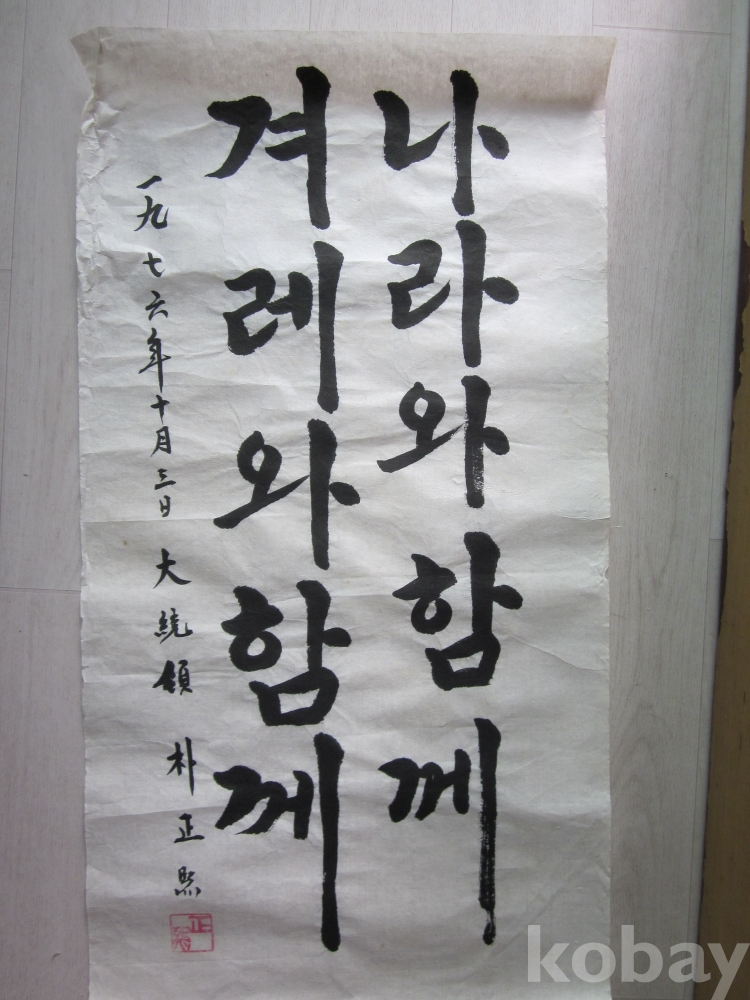 나라와함께
겨레와함께
一九七六年十月三日 大統領 朴正熙
kobay